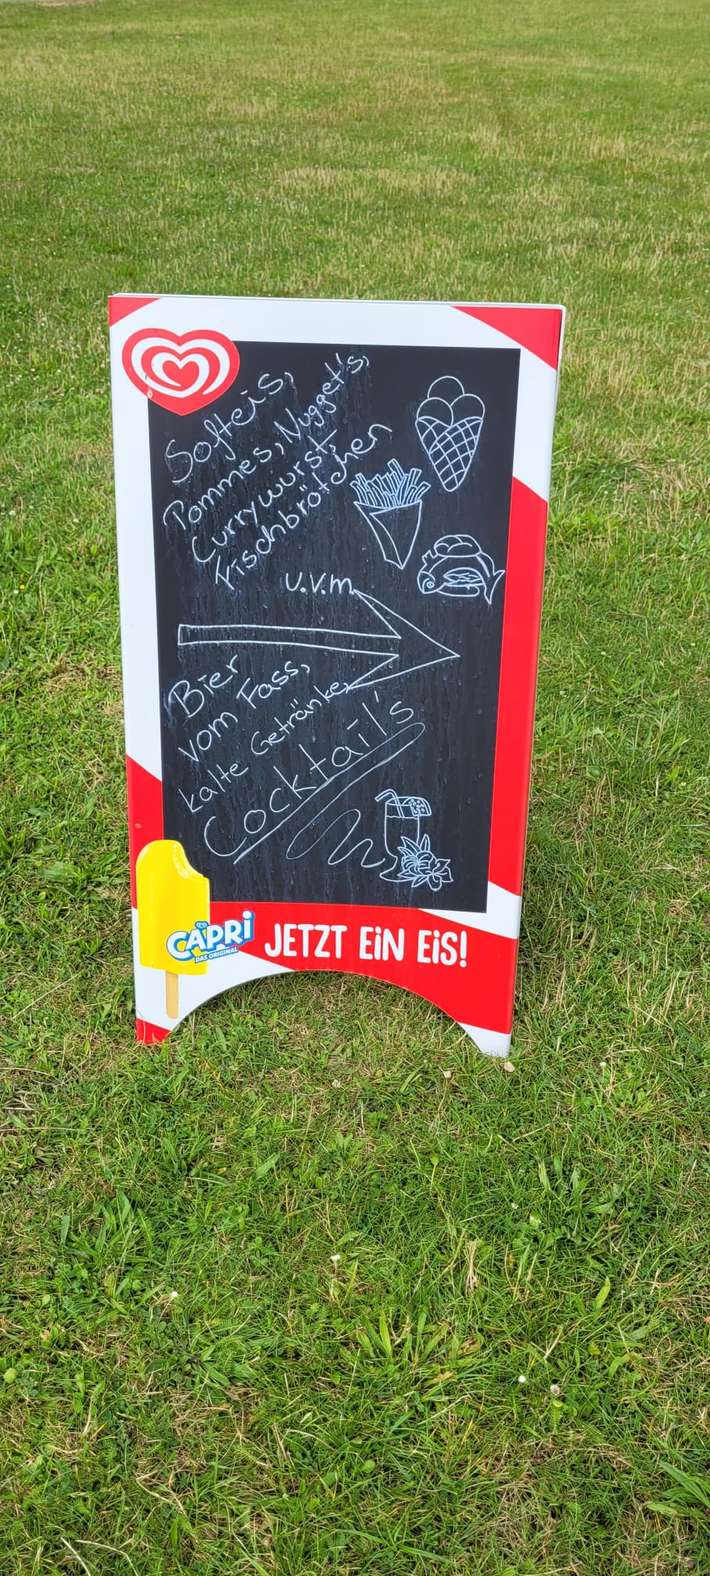 Softeis,
Pommes, Nugget's,
Currywurst,
Fischbrötchen
u.v.m.
Bier
vom Fass,
kalte Getränke,
Cocktail's
CAPRI
DAS ORIGINAL
JETZT EIN EIS!